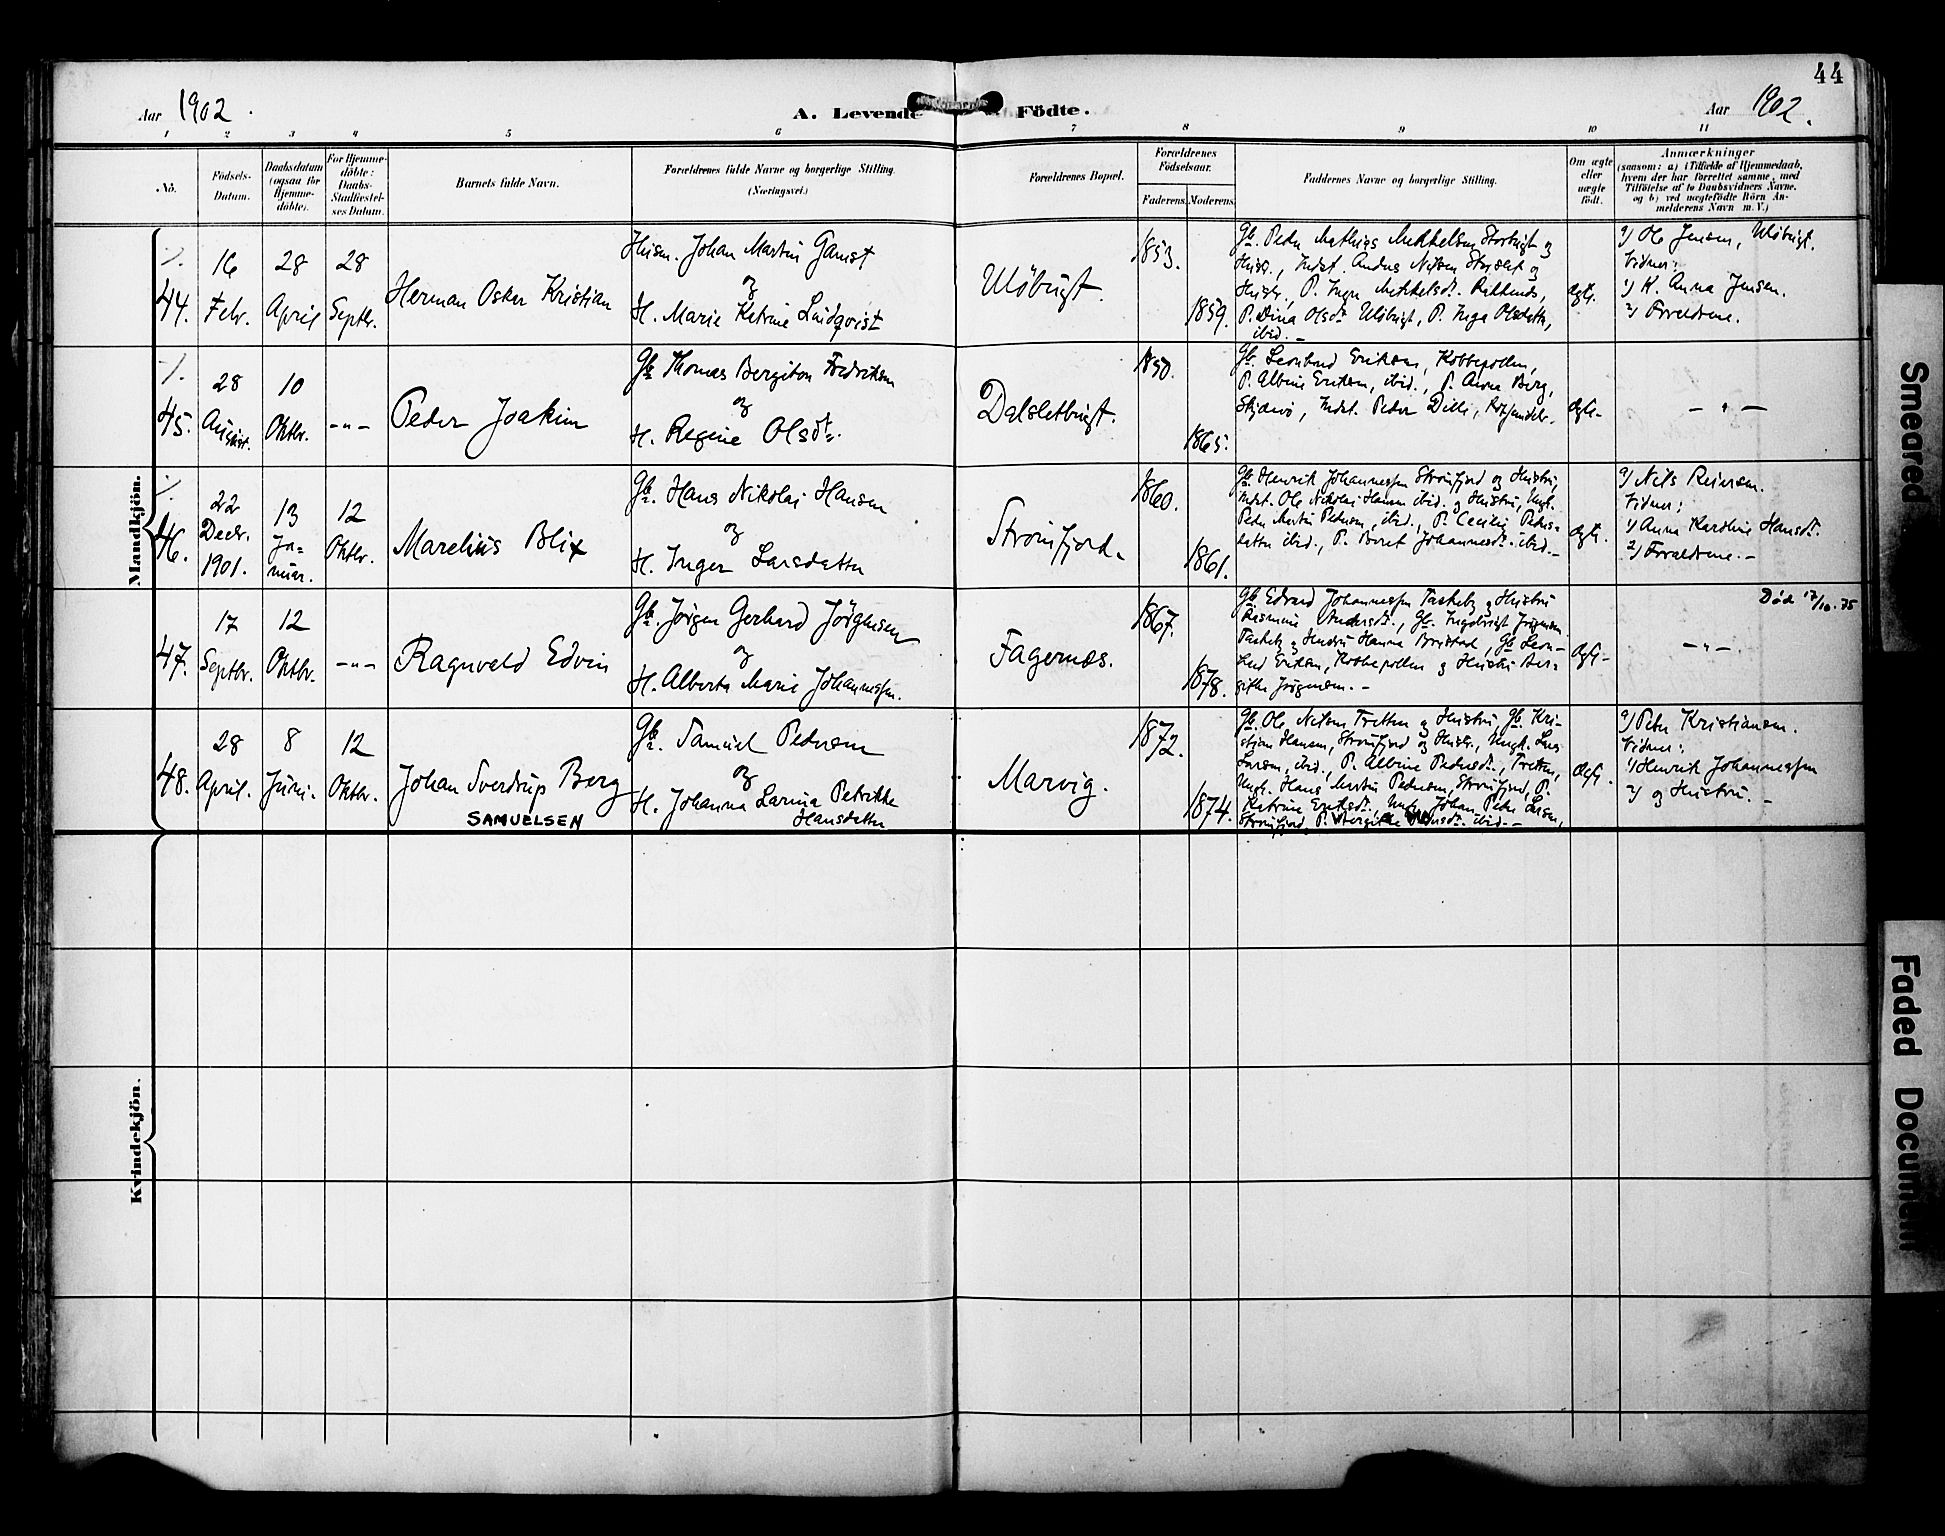 44
Aar 1902.
A. Levende Födte.
Aar 1902.
1 2 3 4 5 6 7 8 9 10 11
No.
Födsels-Datum.
Daabsdatum (ogsaa for Hjemme-döbte).
For Hjemme-döbte: Daabs-Stadfæstel-ses Datum.
Barnets fulde Navn.
Forældrenes fulde Navne og borgerlige Stilling.
(Næringsvei.)
Forældrenes Bopæl.
Forældrenes Födselsaar.
Faderens. Moderens.
Faddernes Navne og borgerlige Stilling.
Om ægte eller uægte födt.
Anmærkninger
(saasom: a) i Tilfælde af Hjemmedaab,
hvem der har forrettet samme, med
Tilföielse af to Daabsvidners Navne,
og b) ved uægtefödte Börn An-
melderens Navn m. V.)
Mandkjön.
44.
16 Febr.
28 April
28 Septbr.
Herman Oskar Kristian
Husm. Johan Martin Gamst
og
H. Marie Katrine Lindqvist
Uløbugt.
1853.
1859.
Gb. Peder Mathias Mikkelsen Storbugt og
Hustr., Indst. Anders Nilsen Storslet og
Hustr., P. Inger Mikkelsdt.
P. Dina Olsdt. Uløbugt, P. Inga Olsdatter,
ibid. -
Ægte.
a) Ole Jensen, Uløbugt.
Vidner:
1) K. Anna Jensen.
2) Forældrene.
45.
28 August.
10 Oktbr.
-"-
Peder Joakim
Gb. Thomas Bergiton Fredriksen
og
H. Regine Olsdt.
Dalsletbugt.
1850.
1865.
Gb. Leonhard Eriksen, Kobbepollen,
P. Albine Eriksen, ibid., P. Anna Berg,
Skjervø, Indst. Peder Dilli,
Ægte-
- " -
46.
22 Decbr. 1901.
13 Ja-
nuar.
12 Oktbr.
Marelius Blix
Gb. Hans Nikolai Hansen
og
H. Inger Larsdatter
Strømfjord.
1860.
1861.
Gb. Henrik Johannessen Strømfjord og Hustru,
Indst. Ole Nikolai Hansen ibid. og Hustru, Ungk.
Peder Martin Pedersen, ibid., P. Cecilie Peders-
datter ibid., P. Beret Johannesdt. ibid.-
Ægte.
a) Nils Reiersen.
Vidner:
1) Anna Karoline Hansdt.
2) Forældrene.-
47.
17 Septbr.
12 Oktbr.
-"-
Ragnvald Edvin
Gb. Jörgen Gerhard Jörgensen
og
H. Alberta Marie Johannessen.
Fagernæs.
1867.
1878.
Gb. Edvard Johannessen Taskeby og Hustru
Rasmine Andersdt., Gb. Ingebrigt Jörgensen
Taskeby og Hustru Hanna Brristad, Gb. Leon-
hard Eriksen, Kobbepollen og Hustru Ber-
githe Jörgensen. -
Ægte-
Död 17/10.75
-"-.
48.
28 April.
8 Juni.
12 Oktbr.
Johan Sverdrup Berg
SAMUELSEN
Gb. Samuel Pedersen
og
H. Johanna Larina Petrikke
Hansdatter
Marvig.
1872.
1874.
Gb. Ole Nilsen Tretten og Hustru, Gb. Kri-
stian Hansen, Strømfjord og Hustr., Ungk. Lars
Larsen, ibid., P. Albine Pedersdt., Tretten,
Ungk. Hans Martin Pedersen, Strømfjord, P.
Katrine Eriksdt., Ungk. Johan Peder Larsen,
Strømfjord, P. ibid.-
Ægte.
a) Peter Kristiansen.
Vidner:
1) Henrik Johannessen
2) og Hustru. -
Kvindekjön.
Smeared
Faded Document